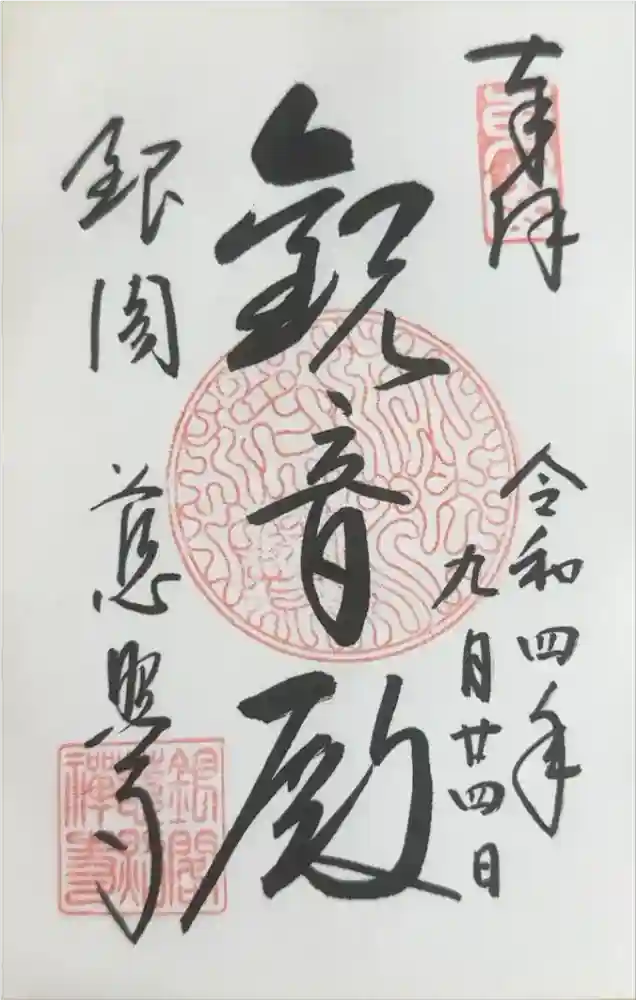 奉拝
令和四年
九月廿四日
観音殿
銀閣 慈照寺
銀閣
慈照
禅寺